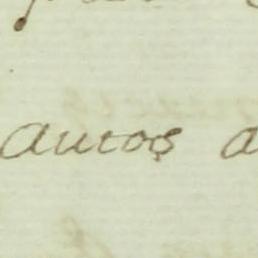 autos a